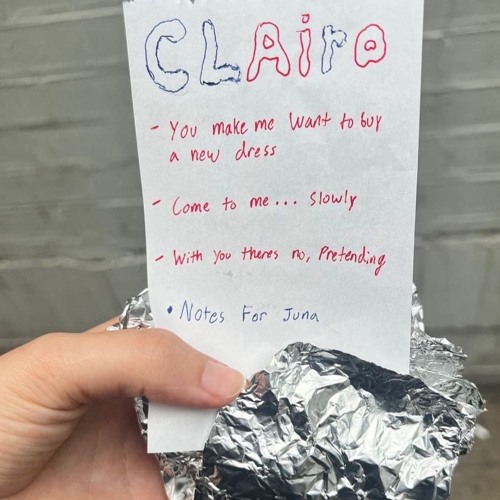 CLAiro
- You make me want to buy
a new dress
- Come to me... slowly
- With you theres no, Pretending
• Notes For Juna